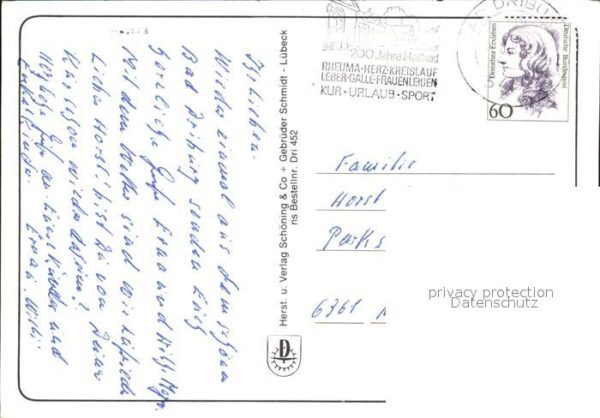 Ihr Lieben.
Wieder einmal aus dem schönen
Bad Driburg senden Euch
herzliche Grüße Erna und Willi
Mit dem Wetter sind wir zufrieden
Lieber Horst! bist Du von Deiner
Kur schon wieder daheim?
Grüße an Eure Kinder und
Enkelkinder.
Erna, Willi
Herst. u. Verlag Schöning & Co + Gebrüder Schmidt · Lübeck
ns Bestellnr. Dri 452
DRIBU
200 Jahre Heilbad
RHEUMA-HERZ-KREISLAUF
LEBER-GALLE-FRAUENLEIDEN
KUR · URLAUB · SPORT
Dorothea Erxleben
Deutsche Bundespost
60
Familie
Horst
6361
privacy protection
Datenschutz